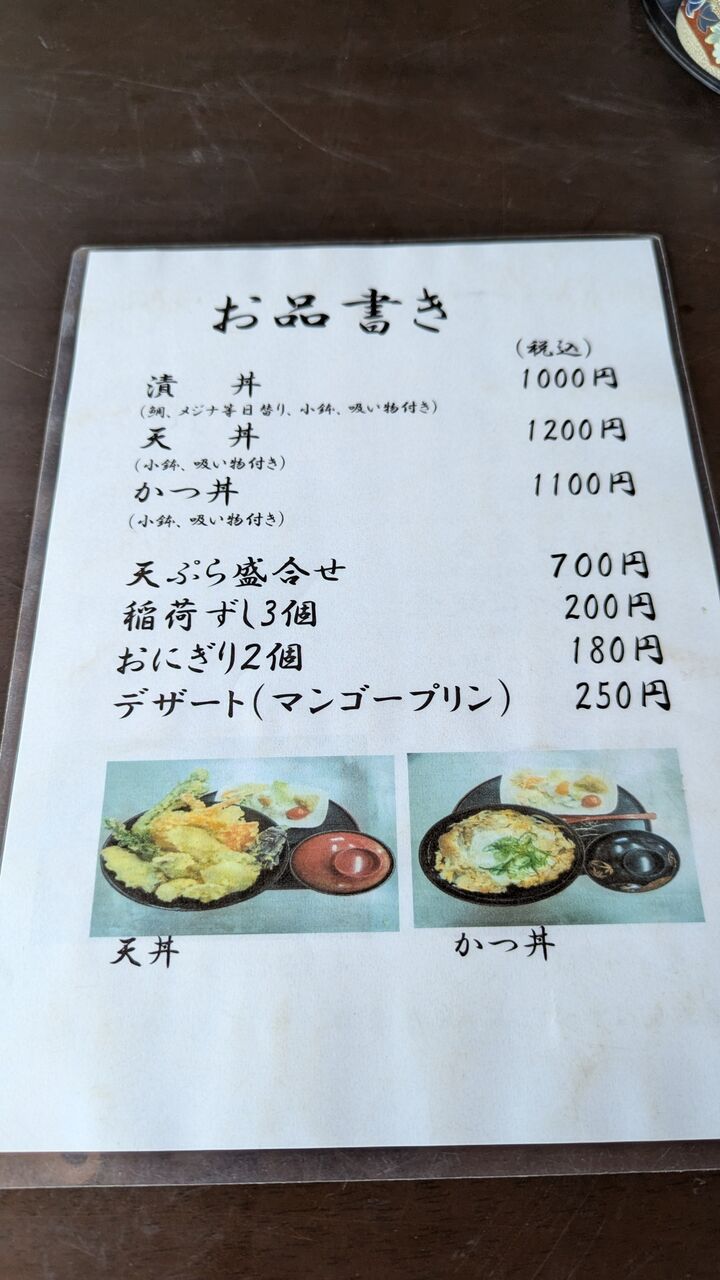 お品書き
(税込)
漬 丼 1000円
(鯛、メジナ等日替り、小鉢、吸い物付き)
天 丼 1200円
(小鉢、吸い物付き)
かつ丼 1100円
(小鉢、吸い物付き)
天ぷら盛合せ 700円
稲荷ずし3個 200円
おにぎり2個 180円
デザート(マンゴープリン) 250円
天丼 かつ丼